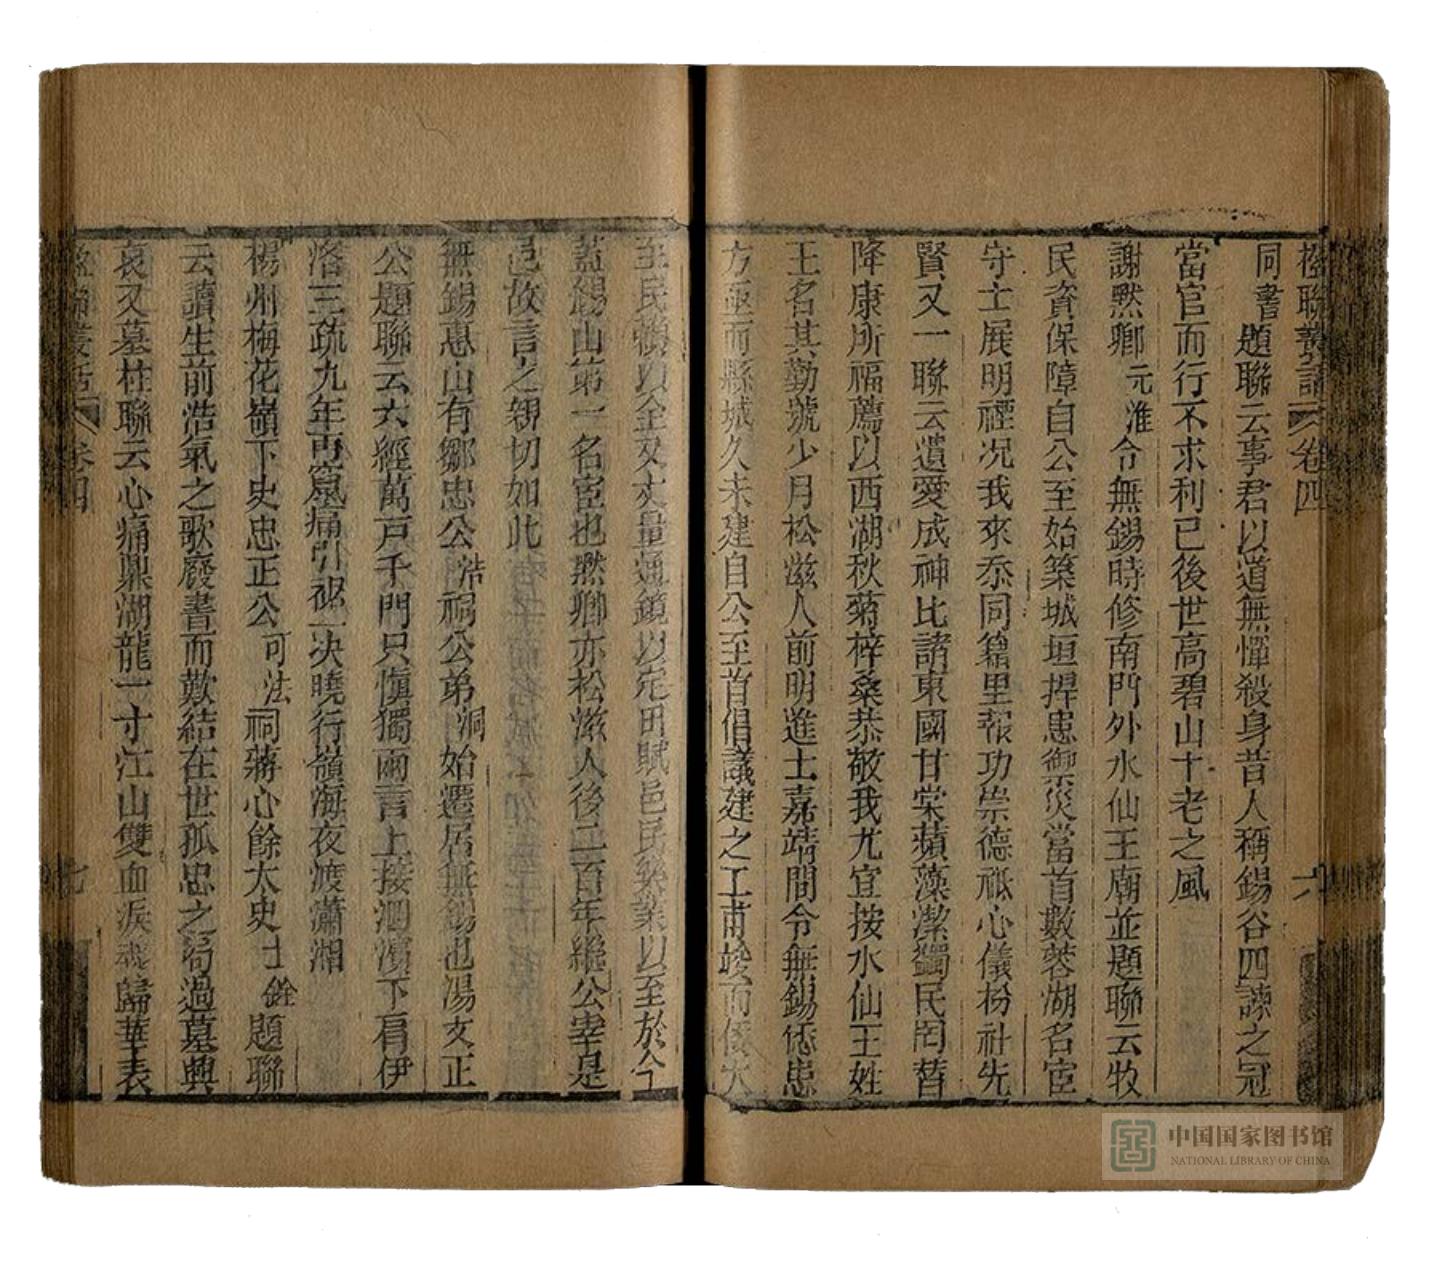 楹聯叢話 卷四 六
同書題聯云事君以道無憚殺身昔人稱錫谷四諫之冠
當官而行不求利已後世高碧山十老之風
謝默卿元淮令無錫時修南門外水仙王廟並題聯云牧
民資保障自公至始築城垣捍患禦災當首數蓉湖名宦
守土展明禋況我來忝同籍里報功崇德祗心儀枌社先
賢又一聯云遺愛成神比諸東國甘棠蘋藻潔蠲民罔替
降康所福薦以西湖秋菊梓桑恭敬我尤宜按水仙王姓
王名其勤號少月松滋人前明進士嘉靖間令無錫倭患
方亟而縣城久未建自公至首倡議建之工甫竣而倭大
至民賴以全又丈量通鏡以定田賦邑民樂業以至於今
蓋錫山第一名宦也默卿亦松滋人後二百年繼公宰是
邑故言之親切如此
無錫惠山有鄒忠公浩祠公弟洞始遷居無錫也湯文正
公題聯云六經萬戶千門只慎獨兩言上接泗濱下肩伊
洛三疏九年再竄痛引裾一決曉行嶺海夜渡瀟湘
楊州梅花嶺下史忠正公可法祠蔣心餘太史士銓題聯
云讀生前浩氣之歌廢書而歎結在世孤忠之局過墓興
哀又墓柱聯云心痛鼎湖龍一寸江山雙血淚魂歸華表
楹聯叢話 卷四 七
中国国家图书馆
NATIONAL LIBRARY OF CHINA